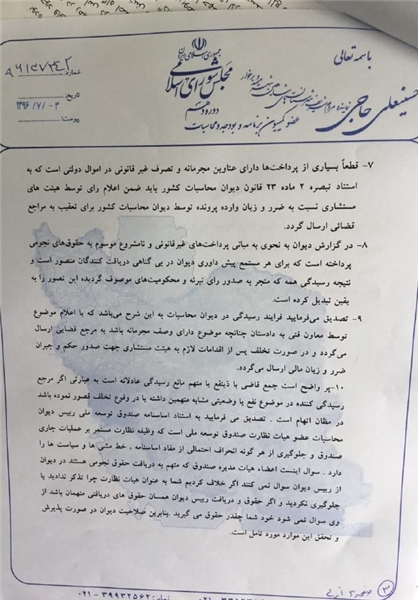 باسمه تعالی
جمهوری اسلامی ایران
مجلس شورای اسلامی
دوره دهم
حسینعلی حاجی
نماینده مردم
عضو کمیسیون برنامه و بودجه و محاسبات
شماره:
تاریخ: ۱۳۹۶/۷/۰۳
پیوست:
۷- قطعاً بسیاری از پرداخت‌ها دارای عناوین مجرمانه و تصرف غیر قانونی در اموال دولتی است که به
استناد تبصره ۲ ماده ۲۳ قانون دیوان محاسبات کشور باید ضمن اعلام رای توسط هیئت های
مستشاری نسبت به ضرر و زیان وارده پرونده توسط دیوان محاسبات کشور برای تعقیب به مراجع
قضائی ارسال گردد.
۸- در گزارش دیوان به نحوی به مبانی پرداخت‌های غیرقانونی و نامشروع موسوم به حقوق‌های نجومی
پرداخته است که برای هر مستمع پیش داوری دیوان در بی گناهی دریافت کنندگان متصور است و
نتیجه رسیدگی همه که منجر به صدور رای تبرئه و محکومیت‌های موصوف گردیده این تصور را به
یقین تبدیل کرده است.
۹- تصدیق می‌فرمایید فرایند رسیدگی در دیوان محاسبات به این شرح می‌باشد که با اعلام موضوع
توسط معاون فنی به دادستان چنانچه موضوع دارای وصف مجرمانه باشد به مرجع قضایی ارسال
می‌گردد و در صورت تخلف پس از اقدامات لازم به هیئت مستشاری جهت صدور حکم و جبران
ضرر و زیان مالی ارسال می‌گردد.
۱۰- پر واضح است جمع قاضی با ذینفع یا متهم مانع رسیدگی عادلانه است به عبارتی اگر مرجع
رسیدگی کننده در موضوع نفع یا وضعیتی مشابه متهمین داشته یا در وقوع تخلف قصور نموده باشد
در مظان اتهام است . تصدیق می فرمایید به استناد اساسنامه صندوق توسعه ملی رییس دیوان
محاسبات عضو هیات نظارت صندوق توسعه ملی است که وظیفه نظارت مستمر بر عملیات جاری
صندوق و جلوگیری از هر گونه انحراف احتمالی از مفاد اساسنامه ، خط مشی ها و سیاست ها را
دارد . سوال اینست اعضاء هیات مدیره صندوق که متهم به دریافت حقوق نجومی هستند در دیوان
از رییس دیوان سوال نمی کنند اگر خلاف کردیم شما به عنوان هیات نظارت چرا تذکر ندادید یا
جلوگیری نکردید و اگر حقوق و دریافت رییس دیوان همسان حقوق های دریافتی متهمان باشد از
وی سوال نمی شود خود شما چقدر حقوق می گیرید. بنابرین صلاحیت دیوان در صورت پذیرش
و تحقق این موارد مورد تامل است.
صفحه ۳ از
۳
۰۲۱-۳۹۹۳۲۵۶۲
۰۲۱-